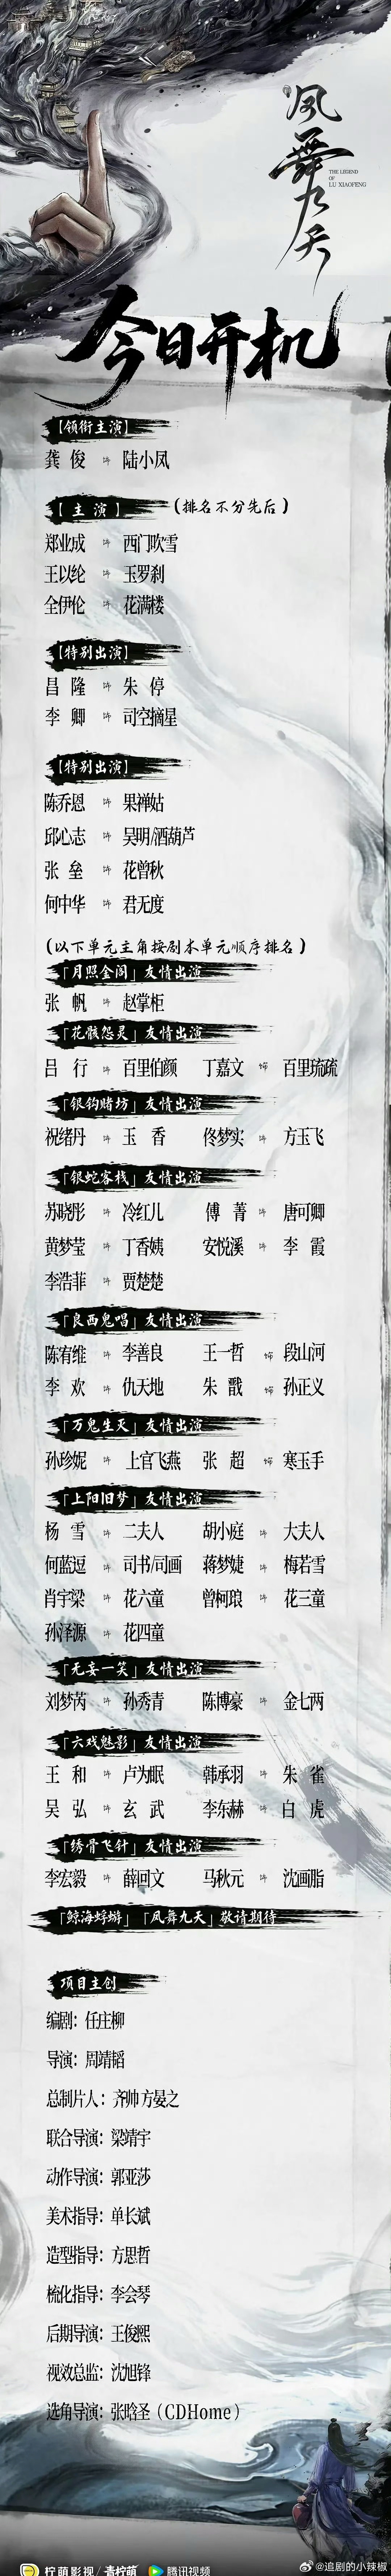 凤舞九天
THE LEGEND
OF
LU XIAOFENG
今日开机
【领衔主演】
龚俊 饰 陆小凤
【主演】（排名不分先后）
郑业成 饰 西门吹雪
王以纶 饰 玉罗刹
全伊伦 饰 花满楼
【特别出演】
昌隆 饰 朱停
李卿 饰 司空摘星
【特别出演】
陈乔恩 饰 果禅姑
邱心志 饰 吴明/酒葫芦
张垒 饰 花曾秋
何中华 饰 君无度
（以下单元主角按剧本单元顺序排名）
「月照金阁」友情出演
张帆 饰 赵掌柜
「花骸怨灵」友情出演
吕行 饰 百里伯颜 丁嘉文 饰 百里琉疏
「银钩赌坊」友情出演
祝绪丹 饰 玉香 佟梦实 饰 方玉飞
「银蛇客栈」友情出演
苏晓彤 饰 冷红儿 傅菁 饰 唐可卿
黄梦莹 饰 丁香姨 安悦溪 饰 李霞
李浩菲 饰 贾楚楚
「良西鬼唱」友情出演
陈宥维 饰 李善良 王一哲 饰 段山河
李欢 饰 仇天地 朱戬 饰 孙正义
「万鬼生灭」友情出演
孙珍妮 饰 上官飞燕 张超 饰 寒玉手
「上阳旧梦」友情出演
杨雪 饰 二夫人 胡小庭 饰 大夫人
何蓝逗 饰 司书/司画 蒋梦婕 饰 梅若雪
肖宇梁 饰 花六童 曾柯琅 饰 花三童
孙泽源 饰 花四童
「无妄一笑」友情出演
刘梦芮 饰 孙秀青 陈博豪 饰 金七两
「六戏魅影」友情出演
王和 饰 卢为眠 韩承羽 饰 朱雀
吴弘 饰 玄武 李东赫 饰 白虎
「绣骨飞针」友情出演
李宏毅 饰 薛回文 马秋元 饰 沈画脂
「鲸海蜉蝣」「凤舞九天」敬请期待
项目主创
编剧：任庄柳
导演：周靖韬
总制片人：齐帅 方晏之
联合导演：梁靖宇
动作导演：郭亚莎
美术指导：单长斌
造型指导：方思哲
梳化指导：李会琴
后期导演：王俊熙
视效总监：沈旭锋
选角导演：张晗圣（CDHome）
柠萌影视/青柠萌 腾讯视频
@追剧的小辣椒